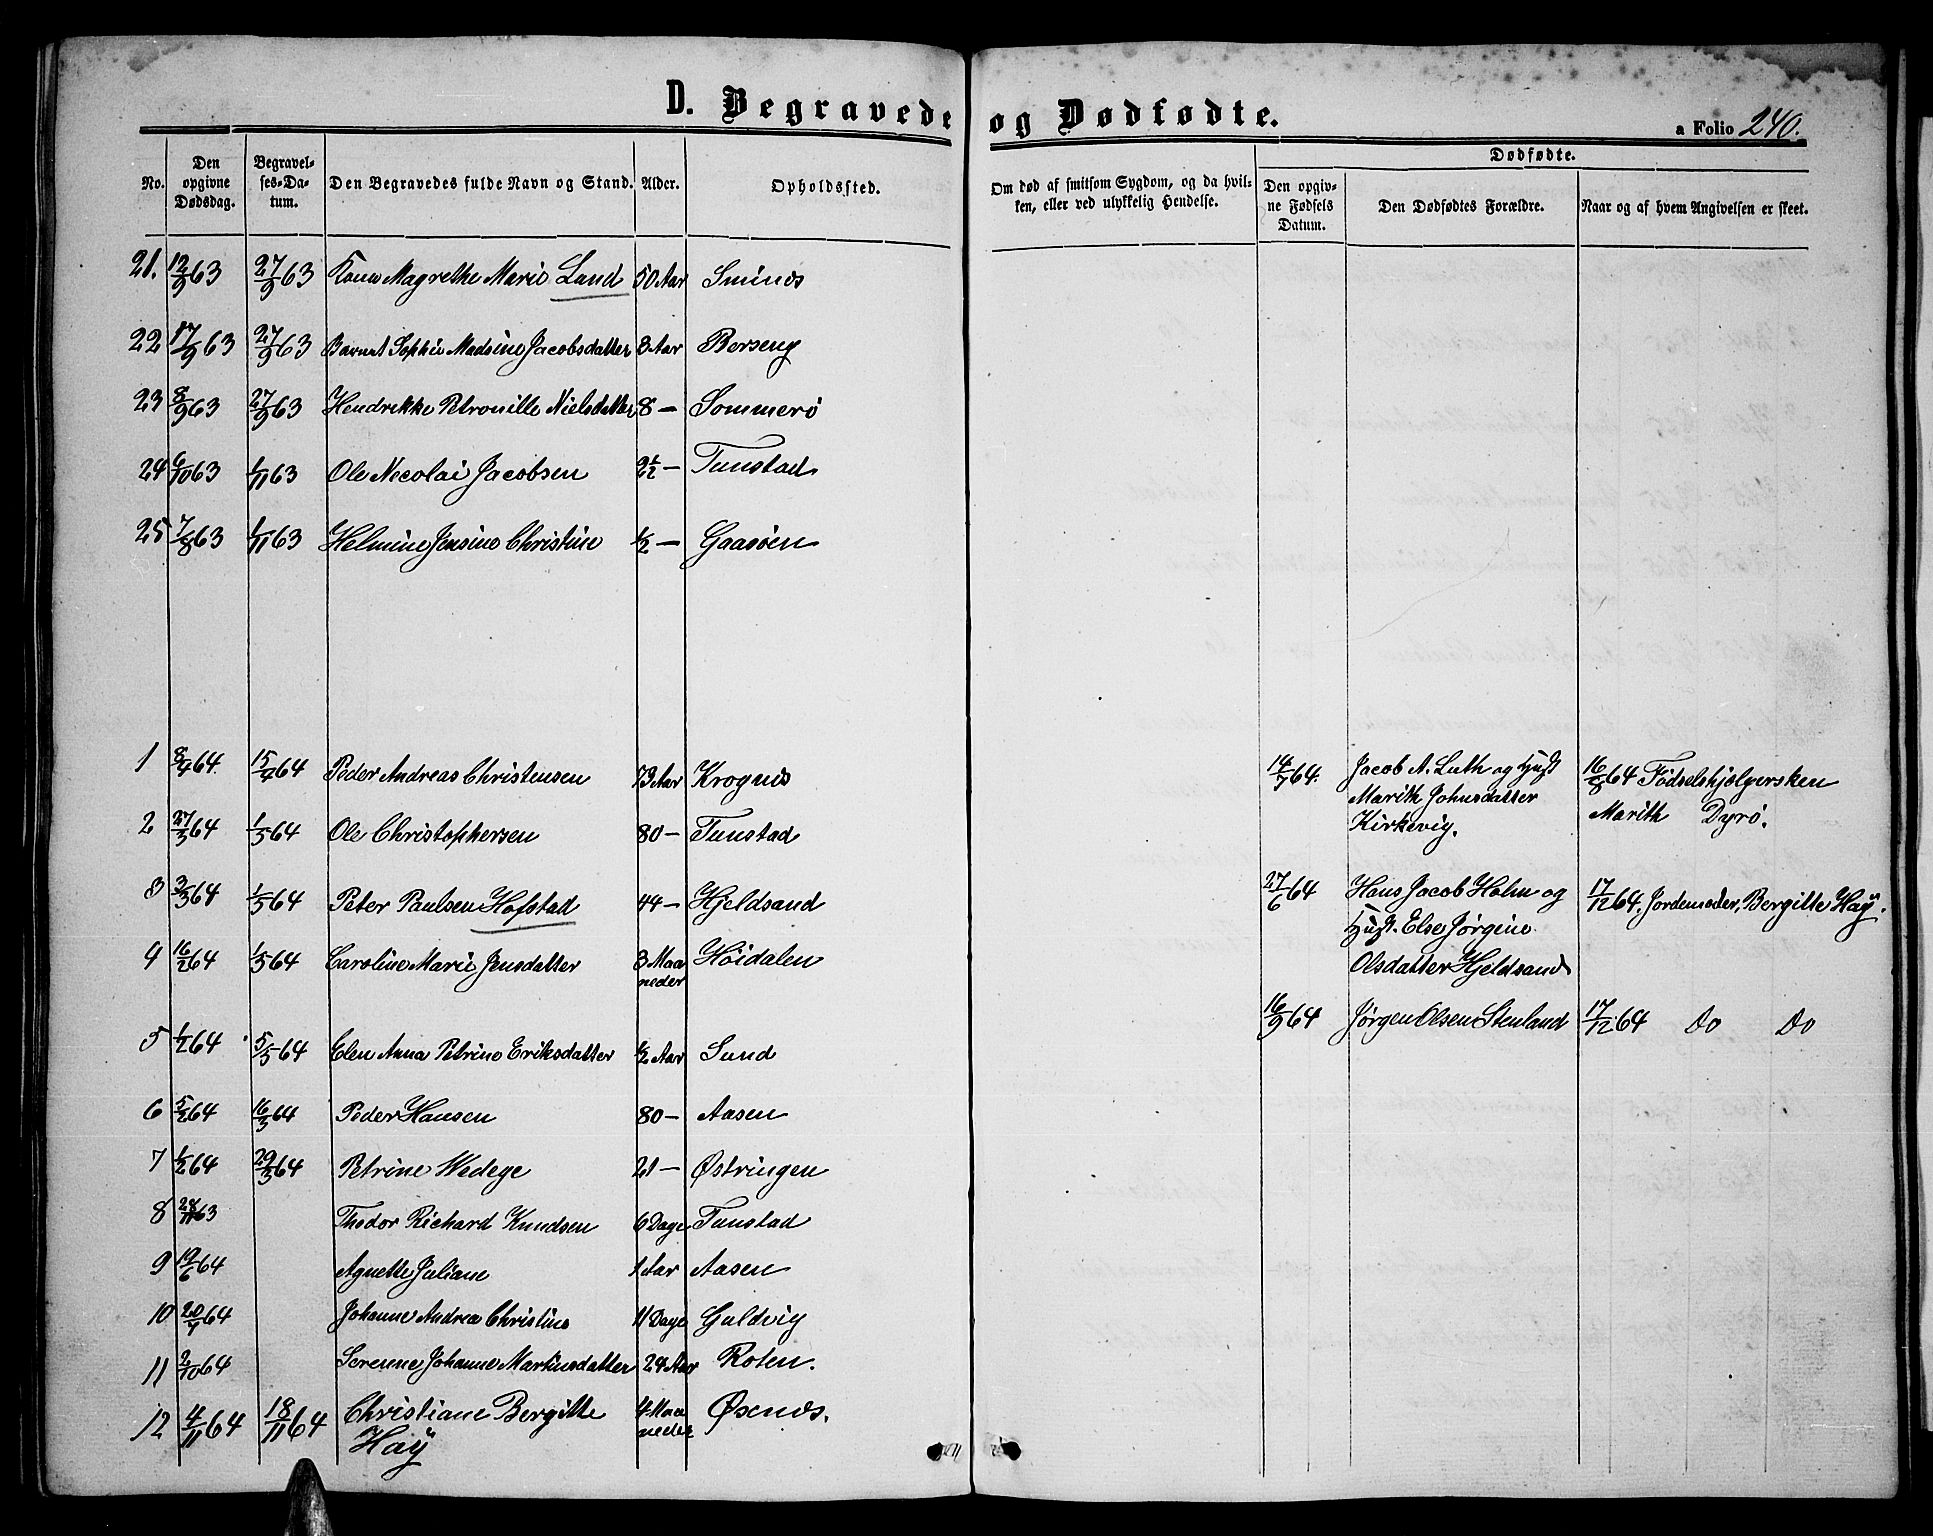 D. Begravede og Dødfødte.
a Folio 240.
No. | Den opgivne Dødsdag. | Begravelses-Datum. | Den Begravedes fulde Navn og Stand. | Alder. | Opholdssted. | Om død af smitsom Sygdom, og da hvilken, eller ved ulykkelig Hendelse. | Dødfødte. | Den opgivne Fødsels Datum. | Den Dødfødtes Forældre. | Naar og af hvem Angivelsen er skeet.
21. 12/9 63 27/9 63 Kona Magrethe Marie Land 50 Aar Smines
22 17/9 63 27/9 63 Barnet Sophie Madsine Jacobsdatter 3 Aar Berseng
23 8/9 63 27/9 63 Hendrekke Petronille Nielsdatter 8 — Sommerö
24 6/10 63 1/11 63 Ole Necolai Jacobsen 2½ — Tunstad
25 7/8 63 1/11 63 Helmine Jensine Christine ½ — Gaasöen
1 8/4 64 15/4 64 Peder Andreas Christensen 73 Aar Krognes
2 27/3 64 1/5 64 Ole Christophersen 80 — Tunstad
3 3/3 64 1/5 64 Peter Paulsen Hofstad 44 — Hjeldsand
4 16/2 64 1/5 64 Caroline Marie Jensdatter 3 Maaneder Höidalen
5 1/2 64 5/5 64 Elen Anna Petrine Eriksdatter ½ Aar Sund
6 5/2 64 16/3 64 Peder Hansen 80 — Aasen
7 1/2 64 29/3 64 Petrine Wedege 21 — Østringen
8 28/11 63 Thodor Richard Knudsen 6 Dage Tunstad
9 19/6 64 Agnette Juliane 1 Aar Aasen
10 20/7 64 Johanne Andrea Christine 11 Dage Guldvig
11 2/10 64 Serenne Johanne Martinsdatter 24 Aar Roten.
12 4/11 64 18/11 64 Christiane Bergitte 4 Maaneder Øsenes.
Hay
14/7 64. Jacob A. Luth og Hust 16/8 64 Födselshjelpersken
Marith Johnsdatter Marith Dyrö.
Kirkevig.
27/6 64 Hans Jacob Holm og 17/12 64. Jordemoder, Bergitte Hay.
Hust. Else Jörgine
Olsdatter Hjeldsand
16/9 64 Jörgen Olsen Stenland 17/12 64 Do Do